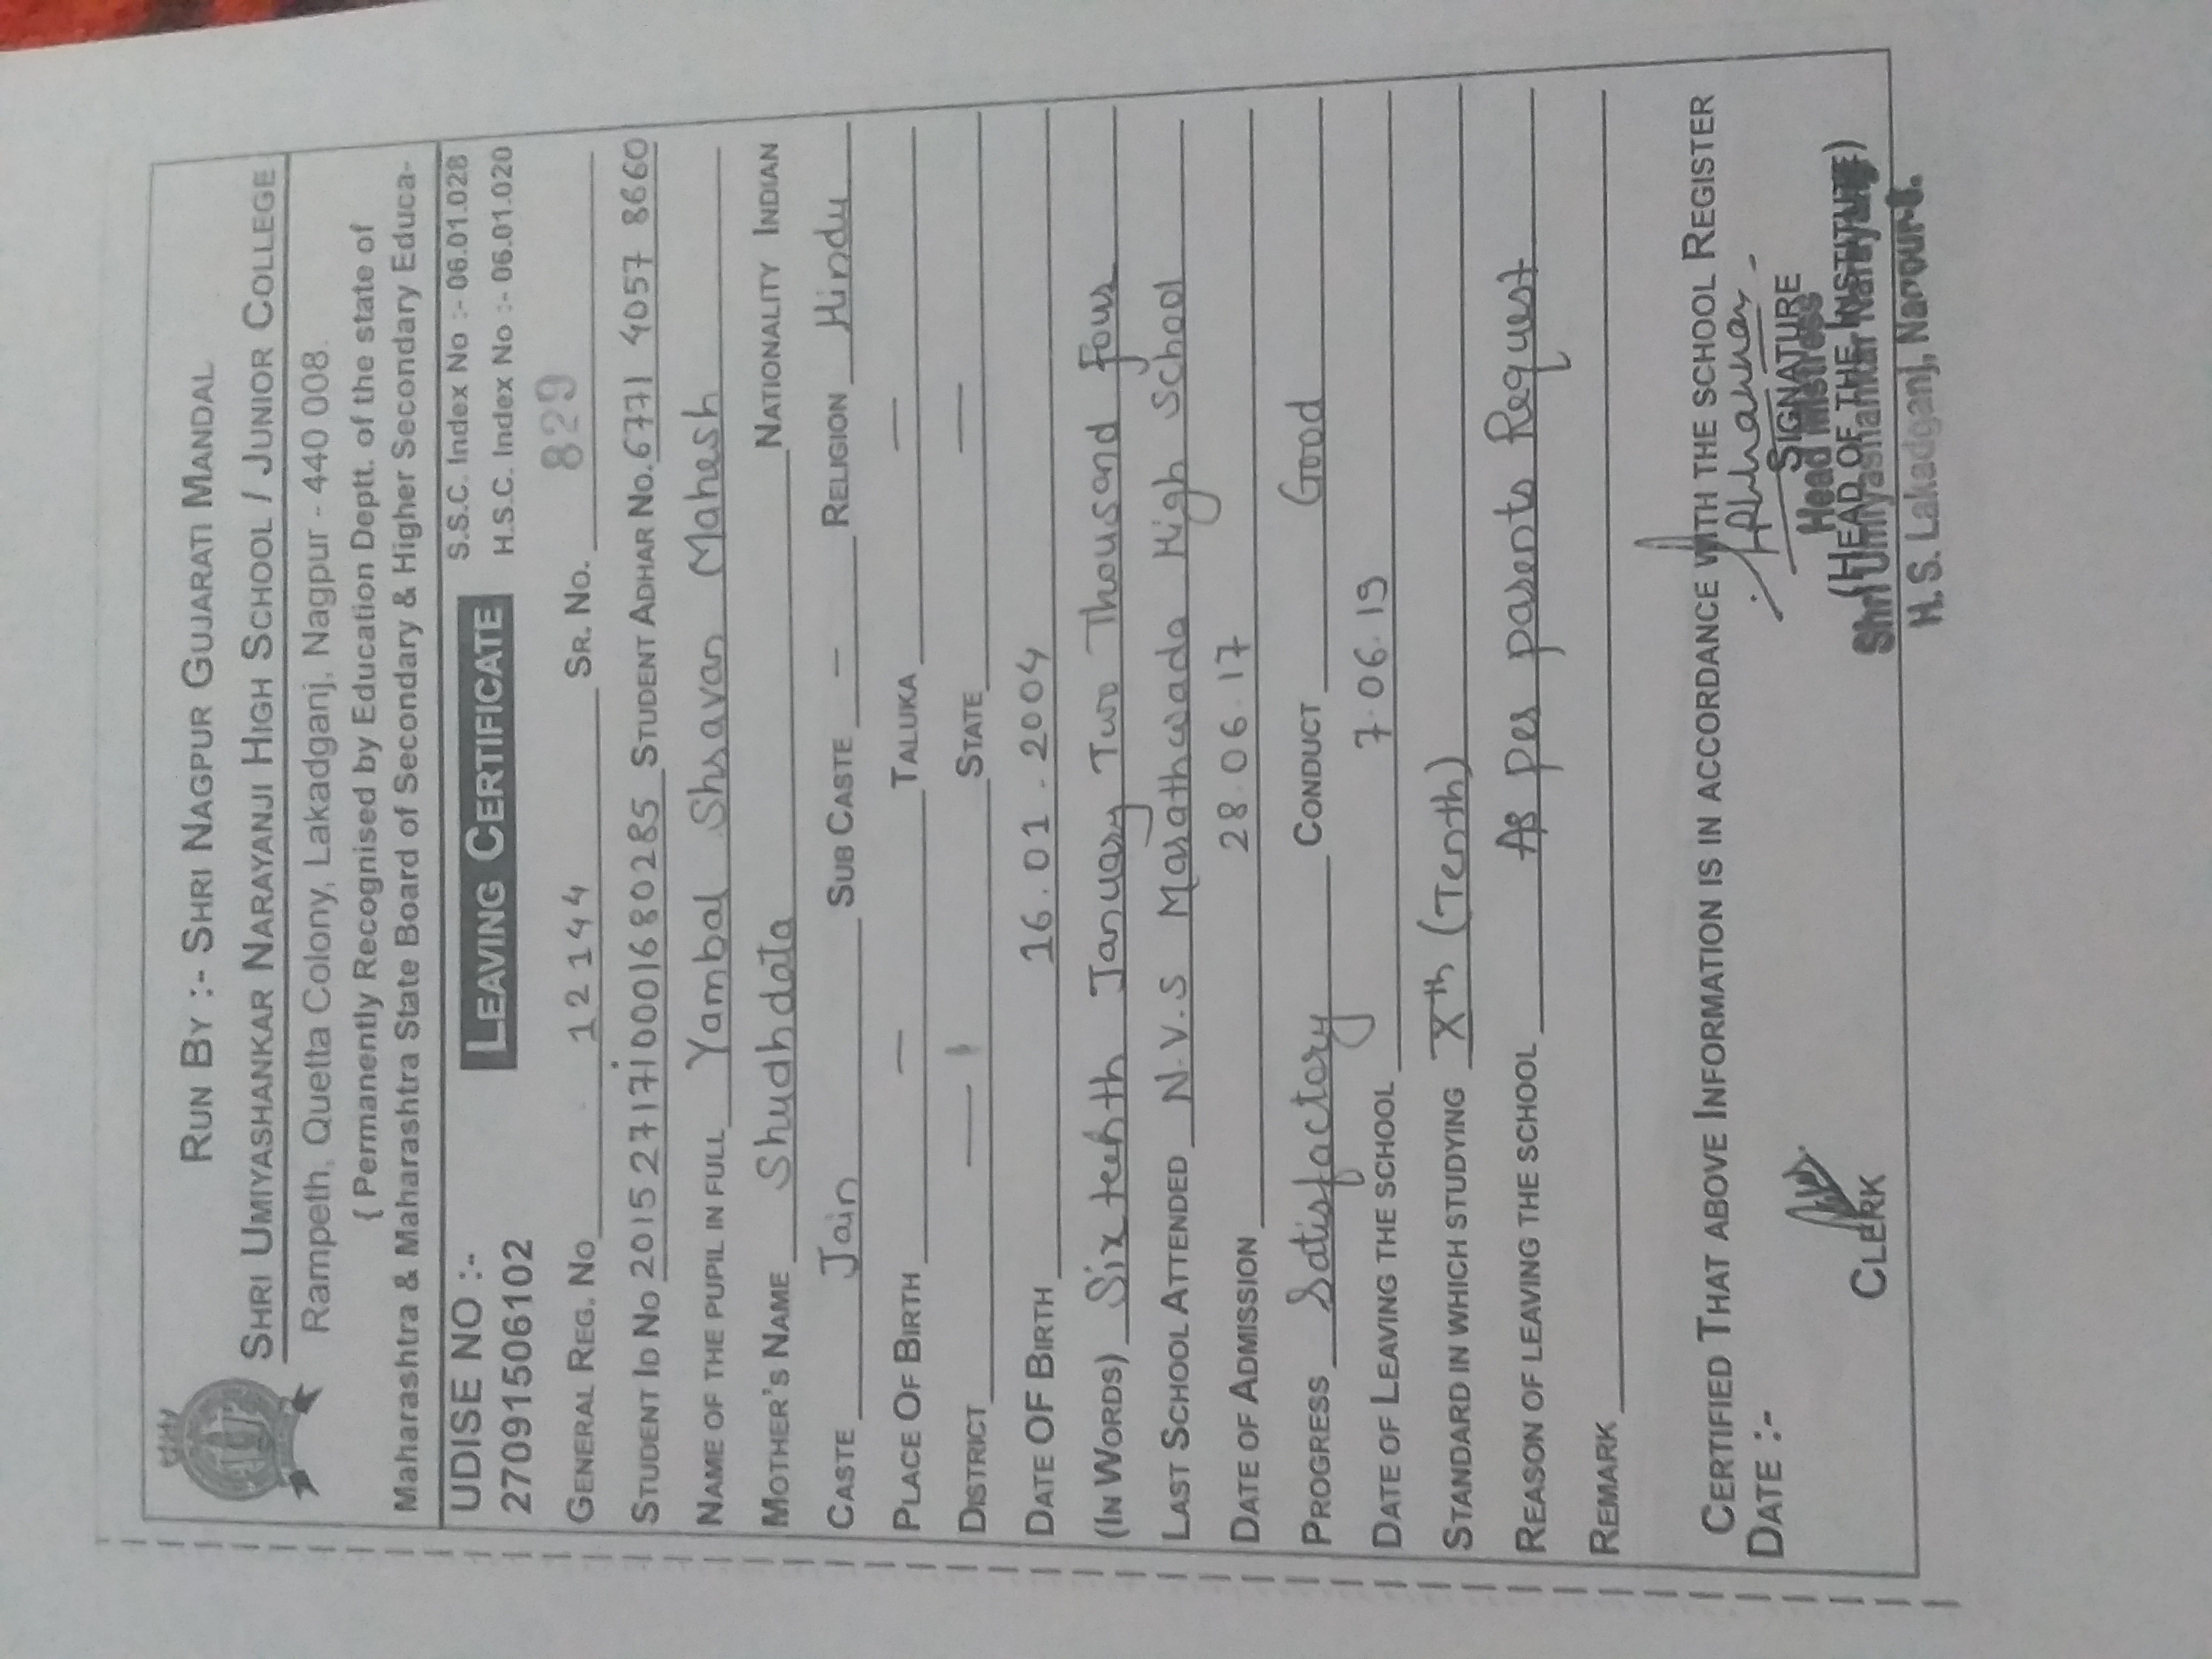 RUN BY :- SHRI NAGPUR GUJARATI MANDAL
SHRI UMIYASHANKAR NARAYANJI HIGH SCHOOL / JUNIOR COLLEGE
Rampeth, Quetta Colony, Lakadganj, Nagpur - 440 008.
{ Permanently Recognised by Education Deptt. of the state of
Maharashtra & Maharashtra State Board of Secondary & Higher Secondary Educa-
UDISE NO :- LEAVING CERTIFICATE S.S.C. Index No :- 06.01.028
27091506102 H.S.C. Index No :- 06.01.020
GENERAL REG. NO 12144 SR. NO. 829
STUDENT ID NO 2015271710001680285 STUDENT ADHAR NO. 6771 4057 8860
NAME OF THE PUPIL IN FULL Yambal Shravan Mahesh
MOTHER'S NAME Shudhdata NATIONALITY INDIAN
CASTE Jain SUB CASTE - RELIGION Hindu
PLACE OF BIRTH - TALUKA -
DISTRICT - STATE -
DATE OF BIRTH 16.01.2004
(IN WORDS) Sixteenth January Two Thousand four
LAST SCHOOL ATTENDED N.V.S Marathwada High School
DATE OF ADMISSION 28.06.17
PROGRESS Satisfactory CONDUCT Good
DATE OF LEAVING THE SCHOOL 7.06.19
STANDARD IN WHICH STUDYING Xth (Tenth)
REASON OF LEAVING THE SCHOOL As per parents Request
REMARK
CERTIFIED THAT ABOVE INFORMATION IS IN ACCORDANCE WITH THE SCHOOL REGISTER
DATE :-
SIGNATURE
Head Mistress
CLERK (HEAD OF THE INSTITUTE)
Shri Umiyashankar Narayanji
H. S. Lakadganj, Nagpur-8.